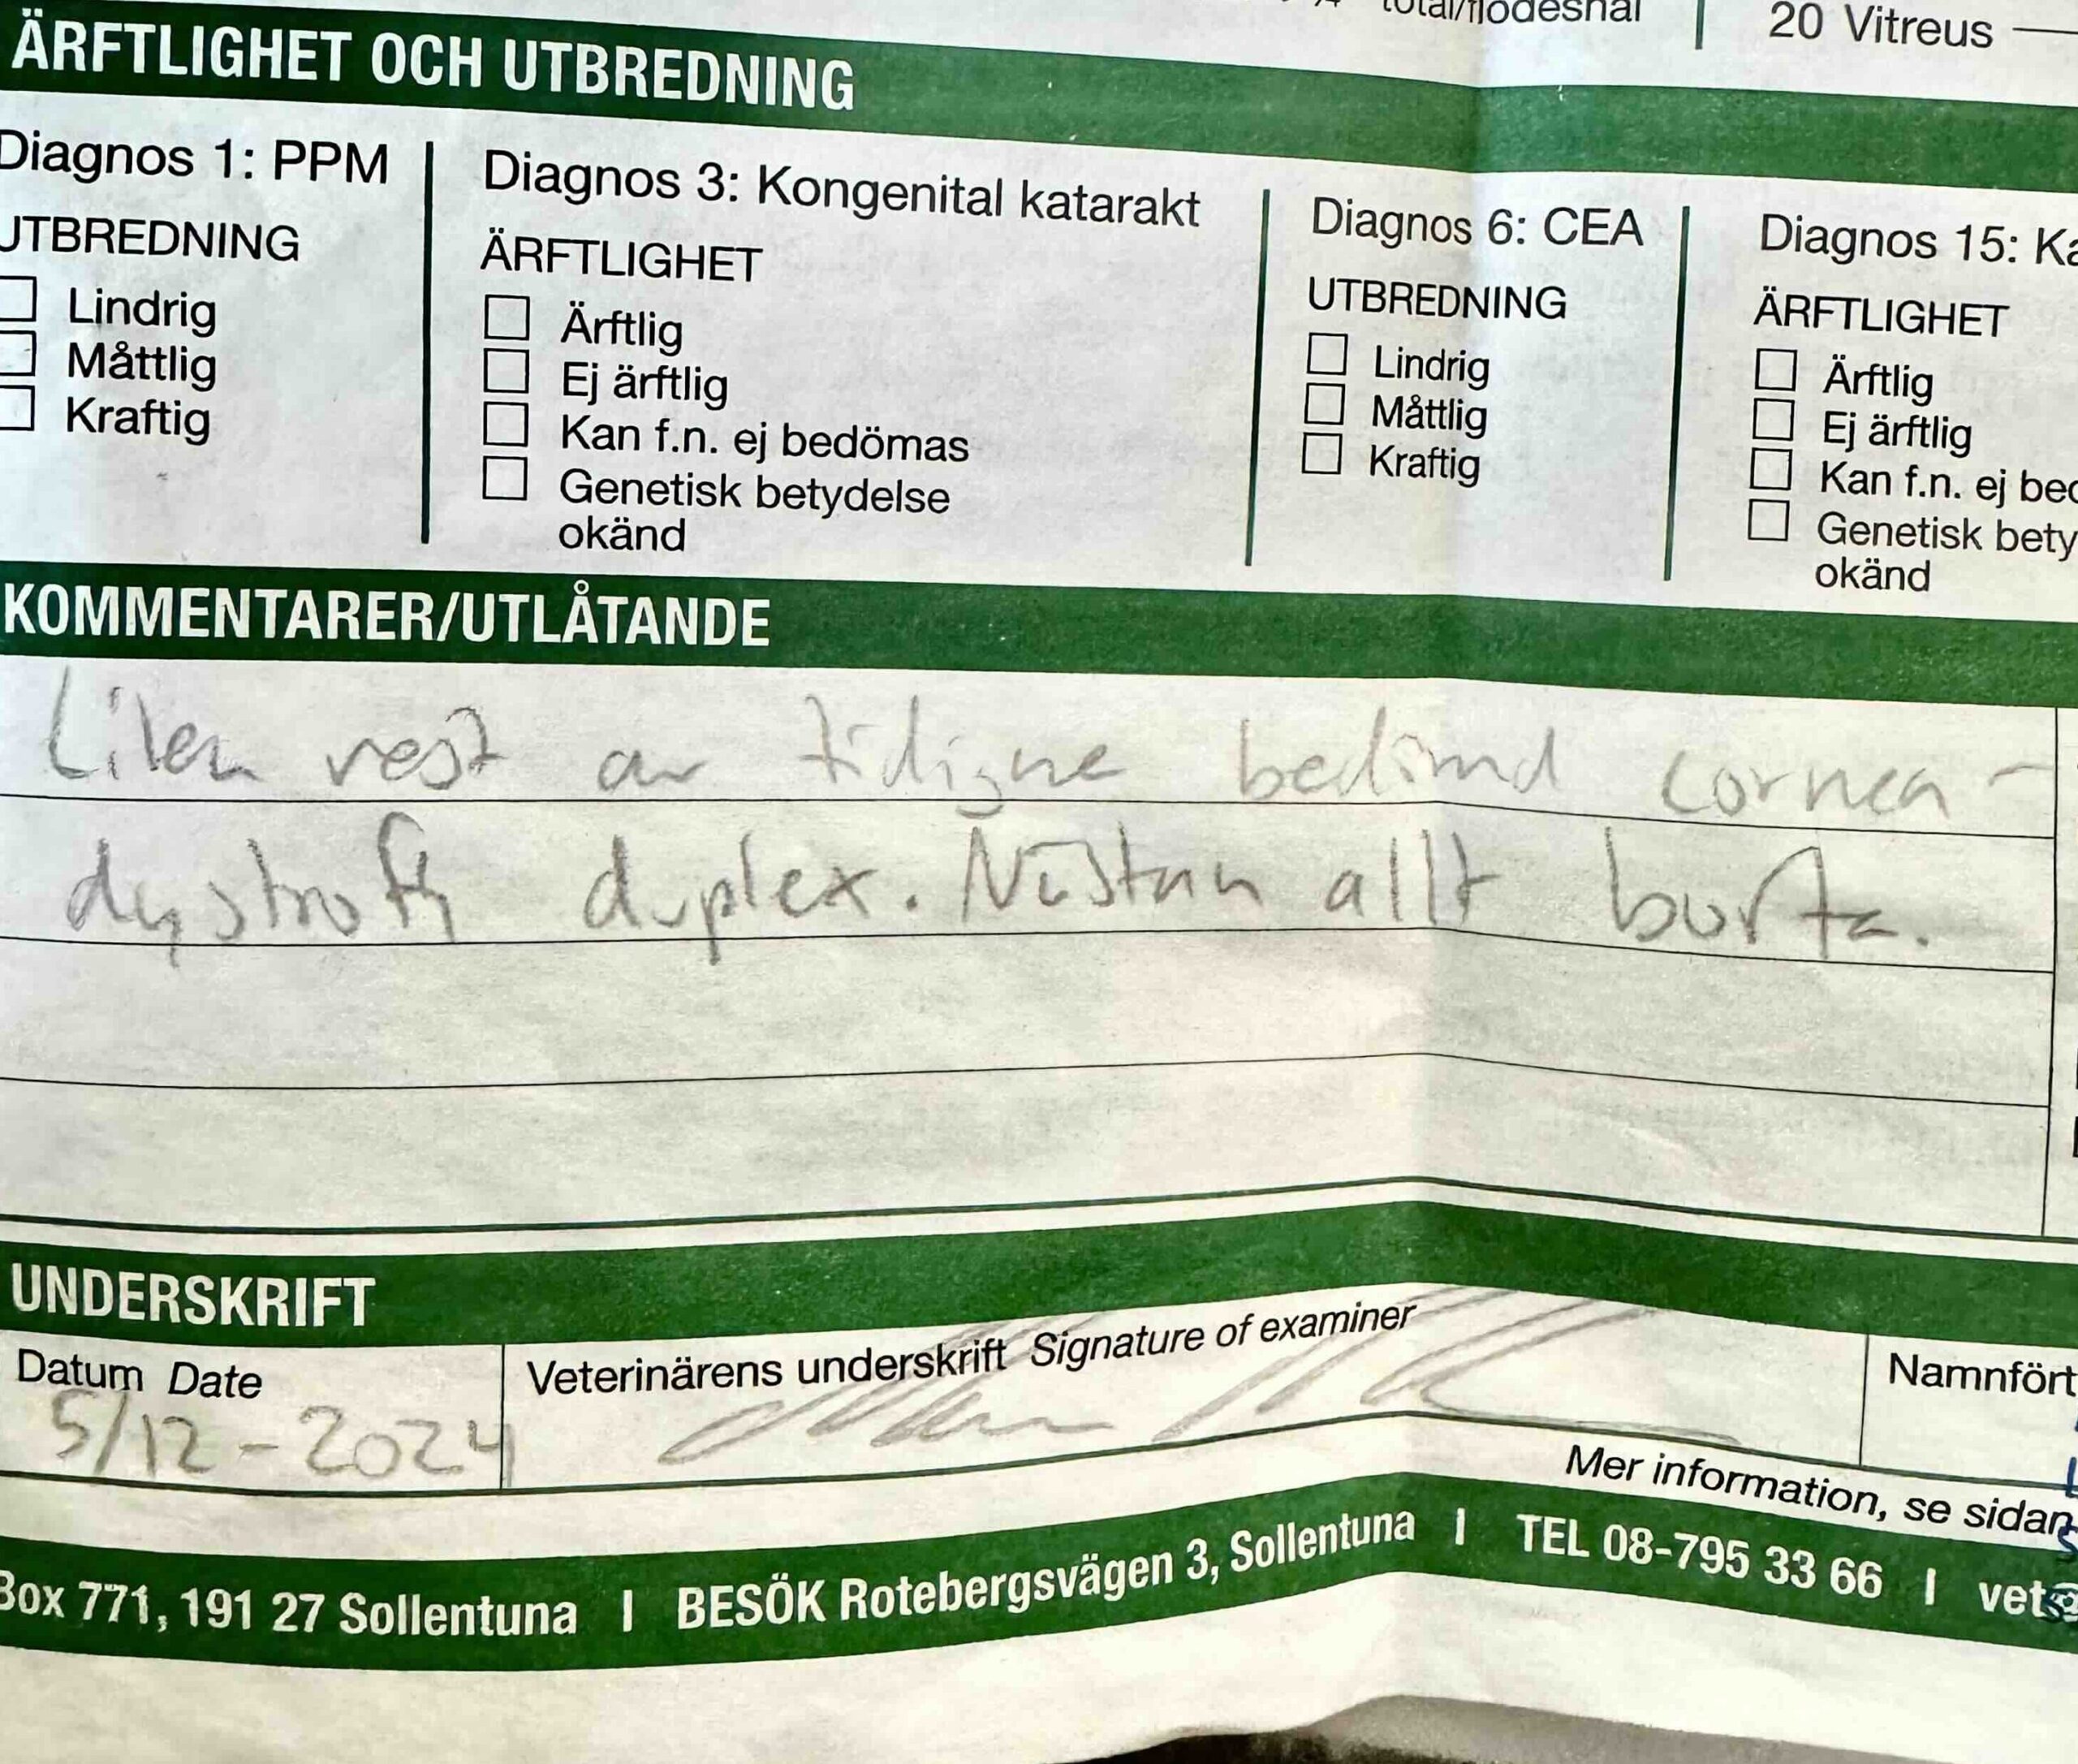 total/flödeshål
20 Vitreus
ÄRFTLIGHET OCH UTBREDNING
Diagnos 1: PPM
UTBREDNING
Lindrig
Måttlig
Kraftig
Diagnos 3: Kongenital katarakt
ÄRFTLIGHET
Ärftlig
Ej ärftlig
Kan f.n. ej bedömas
Genetisk betydelse
okänd
Diagnos 6: CEA
UTBREDNING
Lindrig
Måttlig
Kraftig
Diagnos 15: Ka
ÄRFTLIGHET
Ärftlig
Ej ärftlig
Kan f.n. ej bed
Genetisk bety
okänd
KOMMENTARER/UTLÅTANDE
Liten rest av tidigare bedömd cornea-
dystrofi duplex. Nästan allt borta.
UNDERSKRIFT
Datum Date
5/12-2024
Veterinärens underskrift Signature of examiner
Namnfört
Mer information, se sidan
Box 771, 191 27 Sollentuna | BESÖK Rotebergsvägen 3, Sollentuna | TEL 08-795 33 66 | vet@